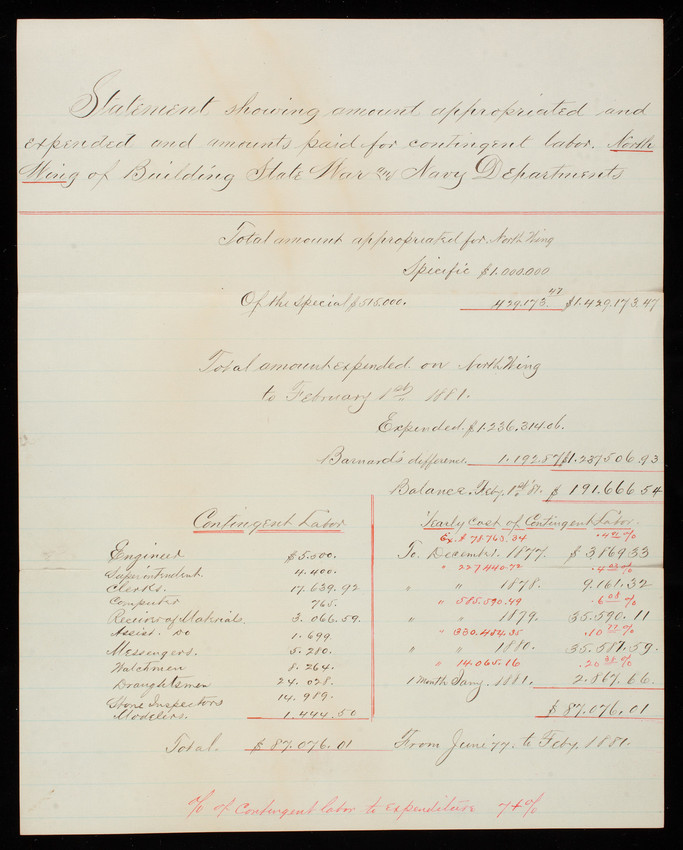 Statement showing amount appropriated and
expended and amounts paid for contingent labor. North
Wing of Building State War and Navy Departments
Total amount appropriated for North Wing
Specific $1.000.000
Of the special $515.000. 429.173.47 $1.429.173.47
Total amount expended on North Wing
to February 1st 1881.
Expended $1.236.314.06.
Barnard's difference 1.192.87 $1.237.506.93
Balance. Feby. 1st '81. $ 191.666.54
Contingent Labor
Engineer $5.500.
Superintendent. 4.400.
Clerks. 17.639.92
Computer 765.
Receiver of Materials. 3.066.59.
Assist. Do 1.699.
Messengers. 5.280.
Watchmen 8.264.
Draughtsmen 24.028.
Stone Inspectors 14.989.
Modelers. 1.444.50
Total. $87.076.01
Yearly Cost of Contingent Labor.
Ex. $ 78.763.34
To December 1877. $3869.33
" 227.440.72
" " 1878. 9.161.32
" 585.590.49 .6 08 %
" " 1879. 35.590.11
" 330.484.35 .10 77 %
" " 1880. 35.587.59.
" 14.065.16 .20 38 %
1 Month Jany. 1881. 2.867.66.
$87.076.01
From June '77. to Feby. 1881.
% of Contingent labor to expenditure 7+%